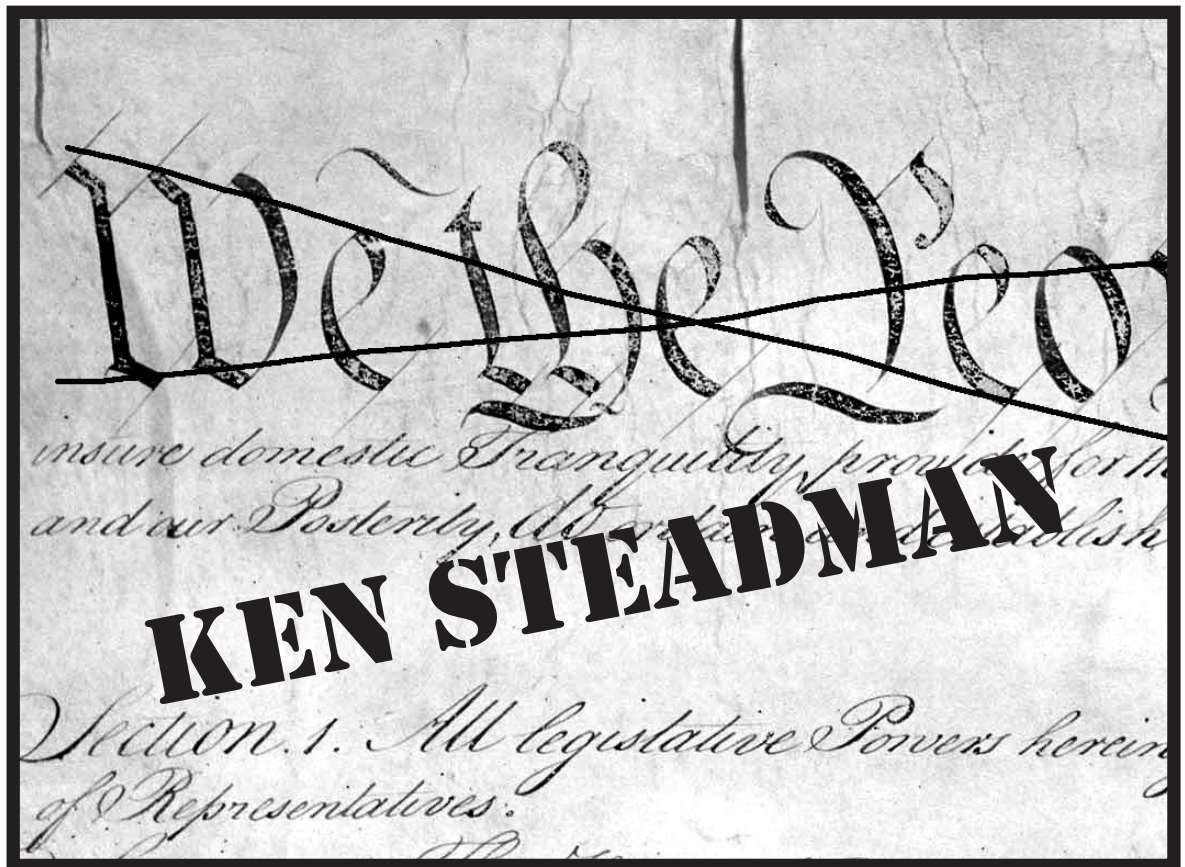 We the Peo
insure domestic Tranquility, provide for th
and our Posterity, do ordain and establish
KEN STEADMAN
Section. 1. All legislative Powers herein
of Representatives.